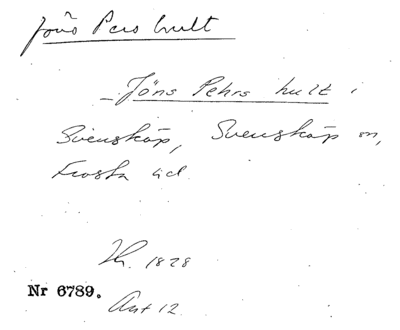 Jöns Pers hult
Jöns Pehrs hult i
Svensköp, Svensköp sn,
Frosta hd
1828
Nr 6789.
Avt 12